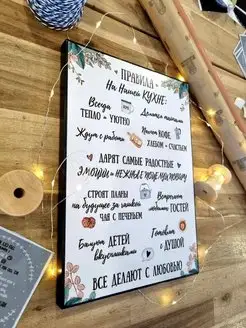 ПРАВИЛА
На Нашей КУХНЕ:
Всегда
ТЕПЛО и УЮТНО
Ждут с работы
КОФЕ
ХЛЕБОМ и СЧАСТЬЕМ
ДАРЯТ САМЫЕ РАДОСТНЫЕ
ЭМОЦИИ и НЕЖНЫЕ
СТРОЯТ ПЛАНЫ
на будущее за чашкой
ЧАЯ С ПЕЧЕНЬЕМ
Встречают
ГОСТЕЙ
Балуют ДЕТЕЙ
вкусняшками
Готовят
с ДУШОЙ
ВСЕ ДЕЛАЮТ С ЛЮБОВЬЮ